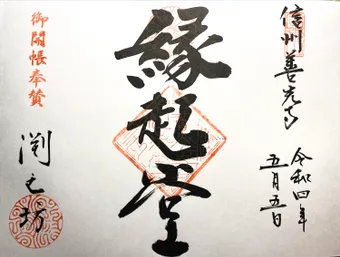 信州善光寺
令和四年
五月五日
縁起堂
御開帳奉賛
渕之坊